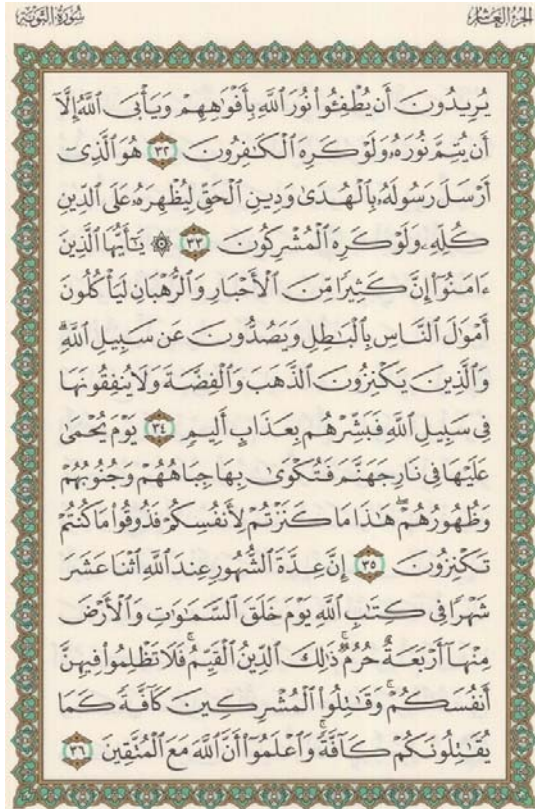 الجزء العاشر
سورة التوبة
يُرِيدُونَ أَن يُطْفِـُٔوا۟ نُورَ ٱللَّهِ بِأَفْوَٰهِهِمْ وَيَأْبَى ٱللَّهُ إِلَّآ
أَن يُتِمَّ نُورَهُۥ وَلَوْ كَرِهَ ٱلْكَـٰفِرُونَ ٣٢ هُوَ ٱلَّذِىٓ
أَرْسَلَ رَسُولَهُۥ بِٱلْهُدَىٰ وَدِينِ ٱلْحَقِّ لِيُظْهِرَهُۥ عَلَى ٱلدِّينِ
كُلِّهِۦ وَلَوْ كَرِهَ ٱلْمُشْرِكُونَ ٣٣ ۞ يَـٰٓأَيُّهَا ٱلَّذِينَ
ءَامَنُوٓا۟ إِنَّ كَثِيرًا مِّنَ ٱلْأَحْبَارِ وَٱلرُّهْبَانِ لَيَأْكُلُونَ
أَمْوَٰلَ ٱلنَّاسِ بِٱلْبَـٰطِلِ وَيَصُدُّونَ عَن سَبِيلِ ٱللَّهِ ۗ
وَٱلَّذِينَ يَكْنِزُونَ ٱلذَّهَبَ وَٱلْفِضَّةَ وَلَا يُنفِقُونَهَا
فِى سَبِيلِ ٱللَّهِ فَبَشِّرْهُم بِعَذَابٍ أَلِيمٍ ٣٤ يَوْمَ يُحْمَىٰ
عَلَيْهَا فِى نَارِ جَهَنَّمَ فَتُكْوَىٰ بِهَا جِبَاهُهُمْ وَجُنُوبُهُمْ
وَظُهُورُهُمْ ۖ هَـٰذَا مَا كَنَزْتُمْ لِأَنفُسِكُمْ فَذُوقُوا۟ مَا كُنتُمْ
تَكْنِزُونَ ٣٥ إِنَّ عِدَّةَ ٱلشُّهُورِ عِندَ ٱللَّهِ ٱثْنَا عَشَرَ
شَهْرًا فِى كِتَـٰبِ ٱللَّهِ يَوْمَ خَلَقَ ٱلسَّمَـٰوَٰتِ وَٱلْأَرْضَ
مِنْهَآ أَرْبَعَةٌ حُرُمٌ ۚ ذَٰلِكَ ٱلدِّينُ ٱلْقَيِّمُ ۚ فَلَا تَظْلِمُوا۟ فِيهِنَّ
أَنفُسَكُمْ ۚ وَقَـٰتِلُوا۟ ٱلْمُشْرِكِينَ كَآفَّةً كَمَا
يُقَـٰتِلُونَكُمْ كَآفَّةً ۚ وَٱعْلَمُوٓا۟ أَنَّ ٱللَّهَ مَعَ ٱلْمُتَّقِينَ ٣٦